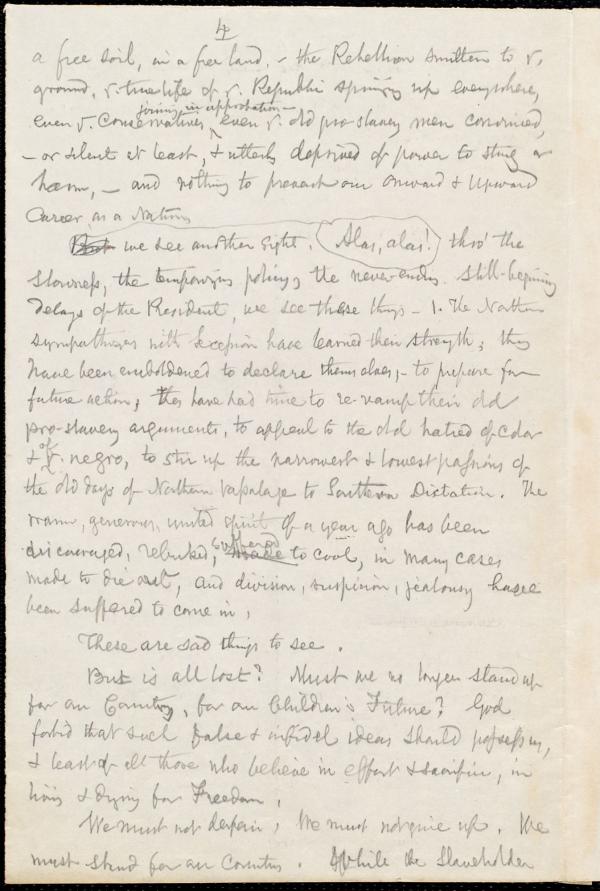 4
a free soil, in a free land, – the Rebellion smitten to ye
ground, ye true life of ye Republic springing up everywhere,
joining in approbation –
even ye Conservatives, even ye old pro-slavery men convinced,
– or silent at least, & utterly deprived of power to sting or
harm, – and nothing to prevent our onward & upward
career, as a Nation
But we see another sight. Alas, alas! thro' the
slowness, the temporizing policy, the never-ending still-beginning
delays of the President, we see these things – 1. The Northern
sympathizers with secession have learned their strength; they
have been emboldened to declare themselves, – to prepare for
future action; they have had time to re-vamp their old
pro-slavery arguments, to appeal to the old hatred of color
& of ye negro, to stir up the narrowest & lowest passions of
the old days of Northern vassalage to Southern Dictation. The
warm, generous, united spirit of a year ago has been
discouraged, rebuked, suffered made to cool, in many cases
made to die out, and division, suspicion, jealousy have
been suffered to come in,
These are sad things to see.
But is all lost? Must we no longer stand up
for our Country, for our Children's Future? God
forbid that such false & infidel ideas should possess us,
& least of all those who believe in effort & sacrifice, in
living & dying for Freedom.
We must not despair, We must not give up. We
must stand for our Country. While the Slaveholder